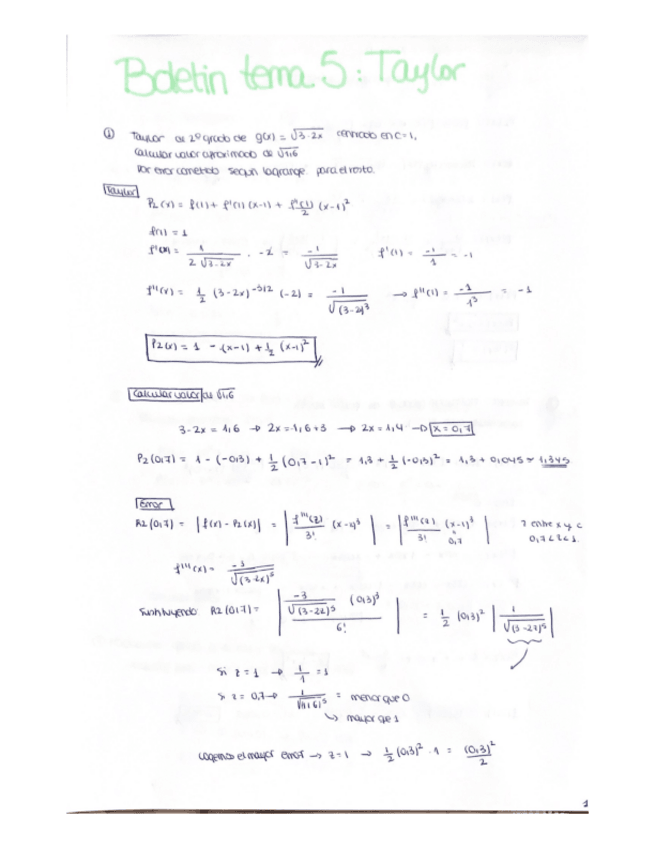 Boletín tema 5: Taylor
① Taylor de 2º grado de g(x) = √(3-2x) centrado en c=1.
Calcular valor aproximado de √1,6
Por error cometido según lagrange para el resto.
Taylor
P₂(x) = f(1) + f'(1) (x-1) + f''(1)/2 (x-1)²
f(1) = 1
f'(x) = 1/(2√(3-2x)) · -2 = -1/√(3-2x)    f'(1) = -1/1 = -1
f''(x) = 1/2 (3-2x)^(-3/2) (-2) = -1/√(3-2x)³ → f''(1) = -1/1³ = -1
P₂(x) = 1 - (x-1) + 1/2 (x-1)²
Calcular valor de √1,6
3-2x = 1,6 → 2x = -1,6+3 → 2x = 1,4 → x = 0,7
P₂(0,7) = 1 - (-0,3) + 1/2 (0,7-1)² = 1,3 + 1/2 (-0,3)² = 1,3 + 0,045 = 1,345
Error
R2(0,7) = |f(x) - P₂(x)| = |f'''(z)/3! (x-c)³| = |f'''(z)/3! (x-1)³|    z entre x y c
0,7    0,7<z<1.
f'''(x) = -3/√(3-2x)⁵
Sustituyendo R2(0,7) = |-3/√(3-2z)⁵ (0,3)³ / 6!| = 1/2 (0,3)² |1/√(3-2z)⁵|
Si z=1 → 1/1 = 1
Si z=0,7 → 1/√(1,6)⁵ = menor que 0
↳ mayor que 1
Cogemos el mayor error → z=1 → 1/2 (0,3)² · 1 = (0,3)²/2
1